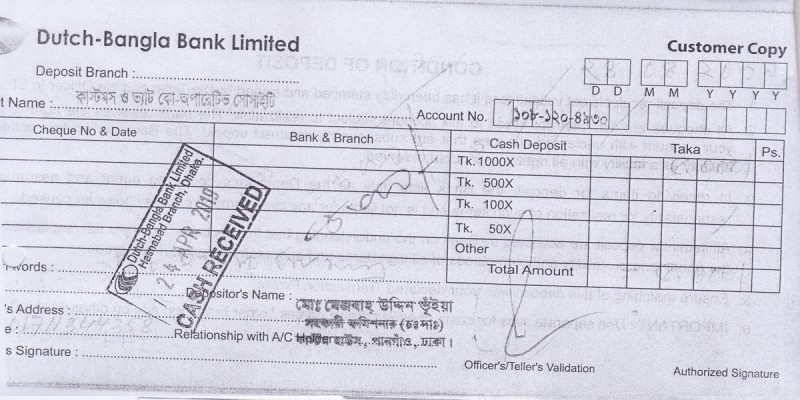 Dutch-Bangla Bank Limited
Customer Copy
Deposit Branch :
D D M M Y Y Y Y
t Name : কাস্টমস ও ভ্যাট কো-অপারেটিভ সোসাইটি
Account No. ১০৮-১২০-৪৯৩০
Cheque No & Date
Bank & Branch
Cash Deposit
Taka
Ps.
Tk. 1000X
Tk. 500X
Tk. 100X
Tk. 50X
Other
Total Amount
Dutch-Bangla Bank Limited
Hasnabad Branch, Dhaka.
24 APR 2019
CASH RECEIVED
words :
positor's Name : মোঃ মেজবাহ উদ্দিন ভূঁইয়া
সহকারী কমিশনার (চঃদাঃ)
's Address :
e :
Relationship with A/C
হাউস, পানগাঁও, ঢাকা।
s Signature :
Officer's/Teller's Validation
Authorized Signature